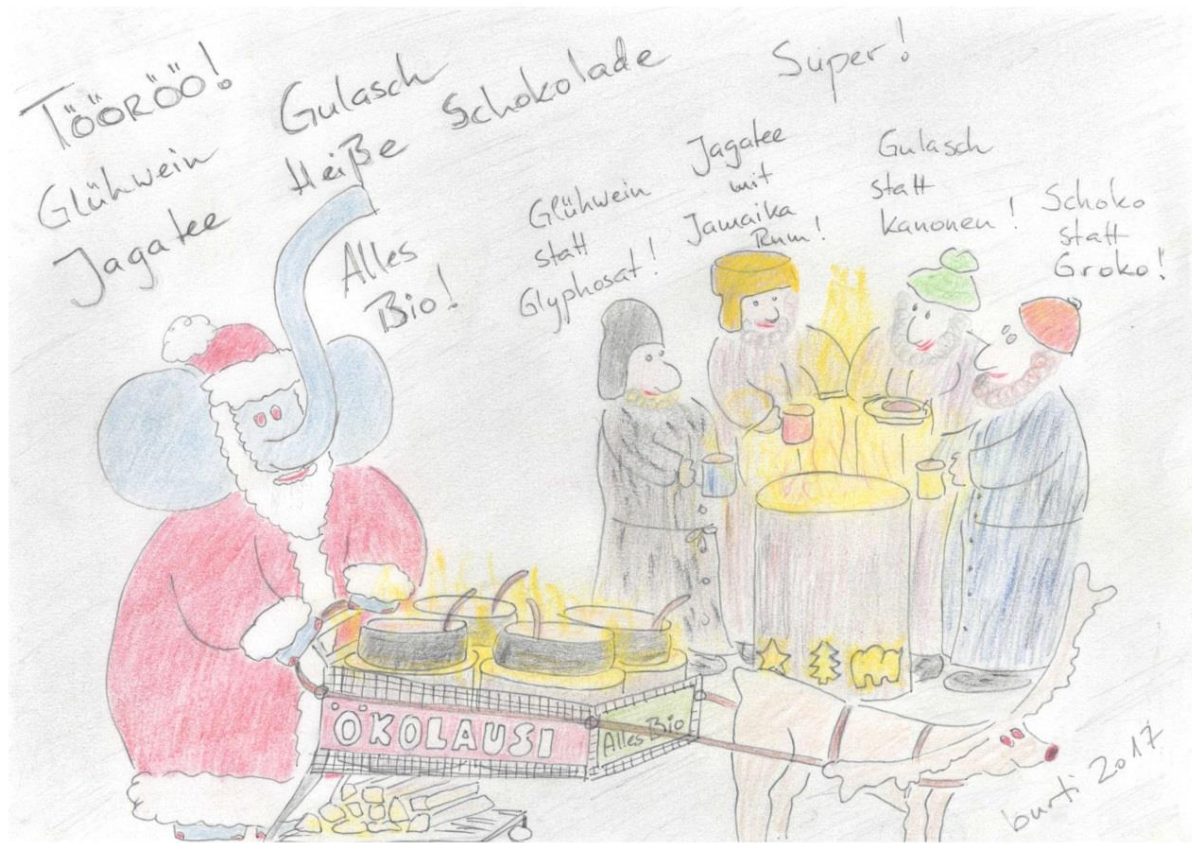 TÖÖRÖÖ!
Glühwein
Jagatee
Gulasch
Heiße Schokolade
Alles
Bio!
Super!
Glühwein
statt
Glyphosat!
Jagatee
mit
Jamaika
Rum!
Gulasch
statt
Kanonen!
Schoko
statt
Groko!
ÖKOLAUSI
Alles Bio
burti 2017